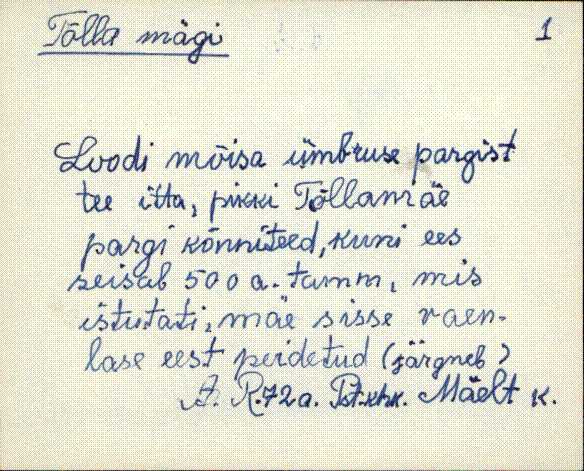 Tõlla mägi 1
Loodi mõisa ümbruse pargist
tee itta, pikki Tõllamäe
pargi kõnniteed, kuni ees
seisab 500 a. tamm, mis
istutati, mäe sisse vaen-
lase eest peidetud (järgneb)
A. R. 72 a. Pst. khk. Mäelt k.